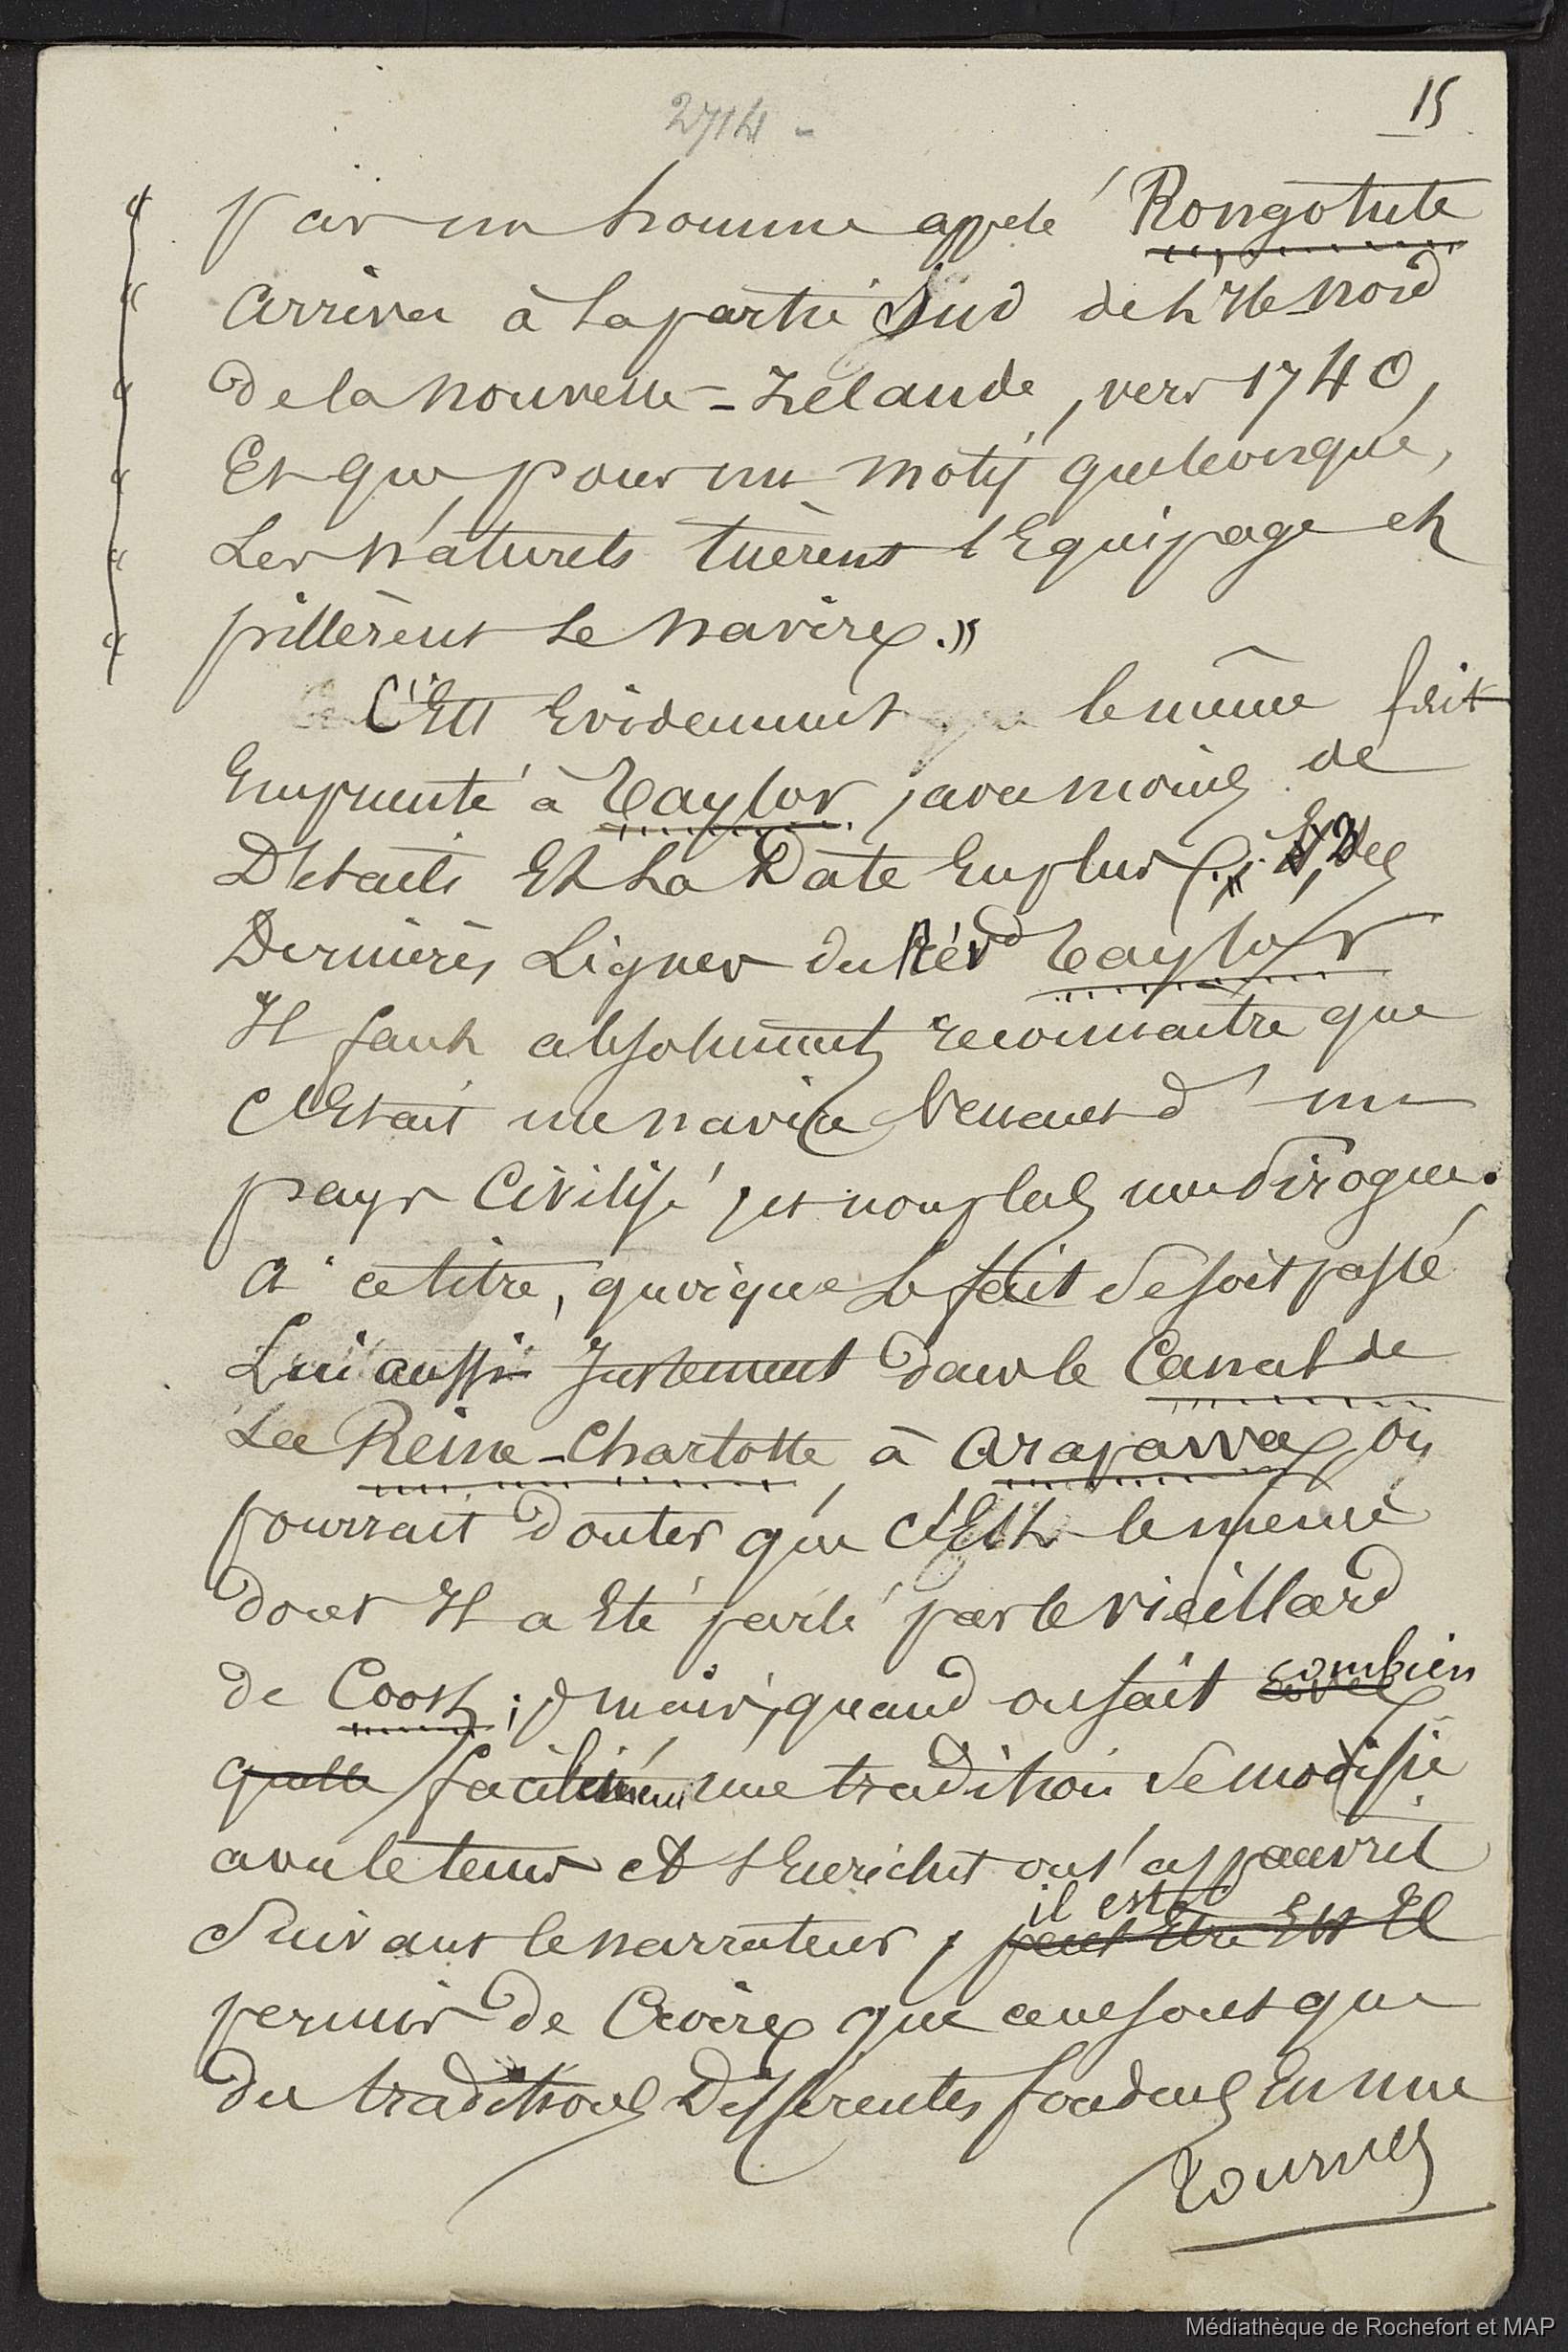 2714 -
15
« par un homme appelé Rongotute
« arriva à la partie Sud de l'Ile Nord
« de la Nouvelle-Zélande, vers 1740,
« Et que, pour un motif quelconque,
« Les Naturels tuèrent l'Equipage et
« pillèrent Le Navire. »
C'Est Evidemment le même fait
Emprunté à Taylor, avec moins de
Détails Et La Date En plus. Des
Dernières Lignes du Révd Taylor
Il faut absolument reconnaitre que
C'Etait un navire Venant d'un
pays Civilisé, et non plus une Pirogue.
A ce titre, quoique Le fait Se soit passé
Lui aussi Justement dans le Canal de
La Reine-Charlotte, à Arapawa, on
pourrait Douter que C'Est le même
dont Il a Eté parlé par le vieillard
de Cook ; mais, quand on sait combien
quelle facilement une tradition Se modifie
avec le tems et s'Enrichit ou s'appauvrit
il est
Suivant le narrateur, peut Etre Est Il
permis de Croire que ce ne sont que
des traditions Différentes fondues En une
Tournez
Médiathèque de Rochefort et MAP